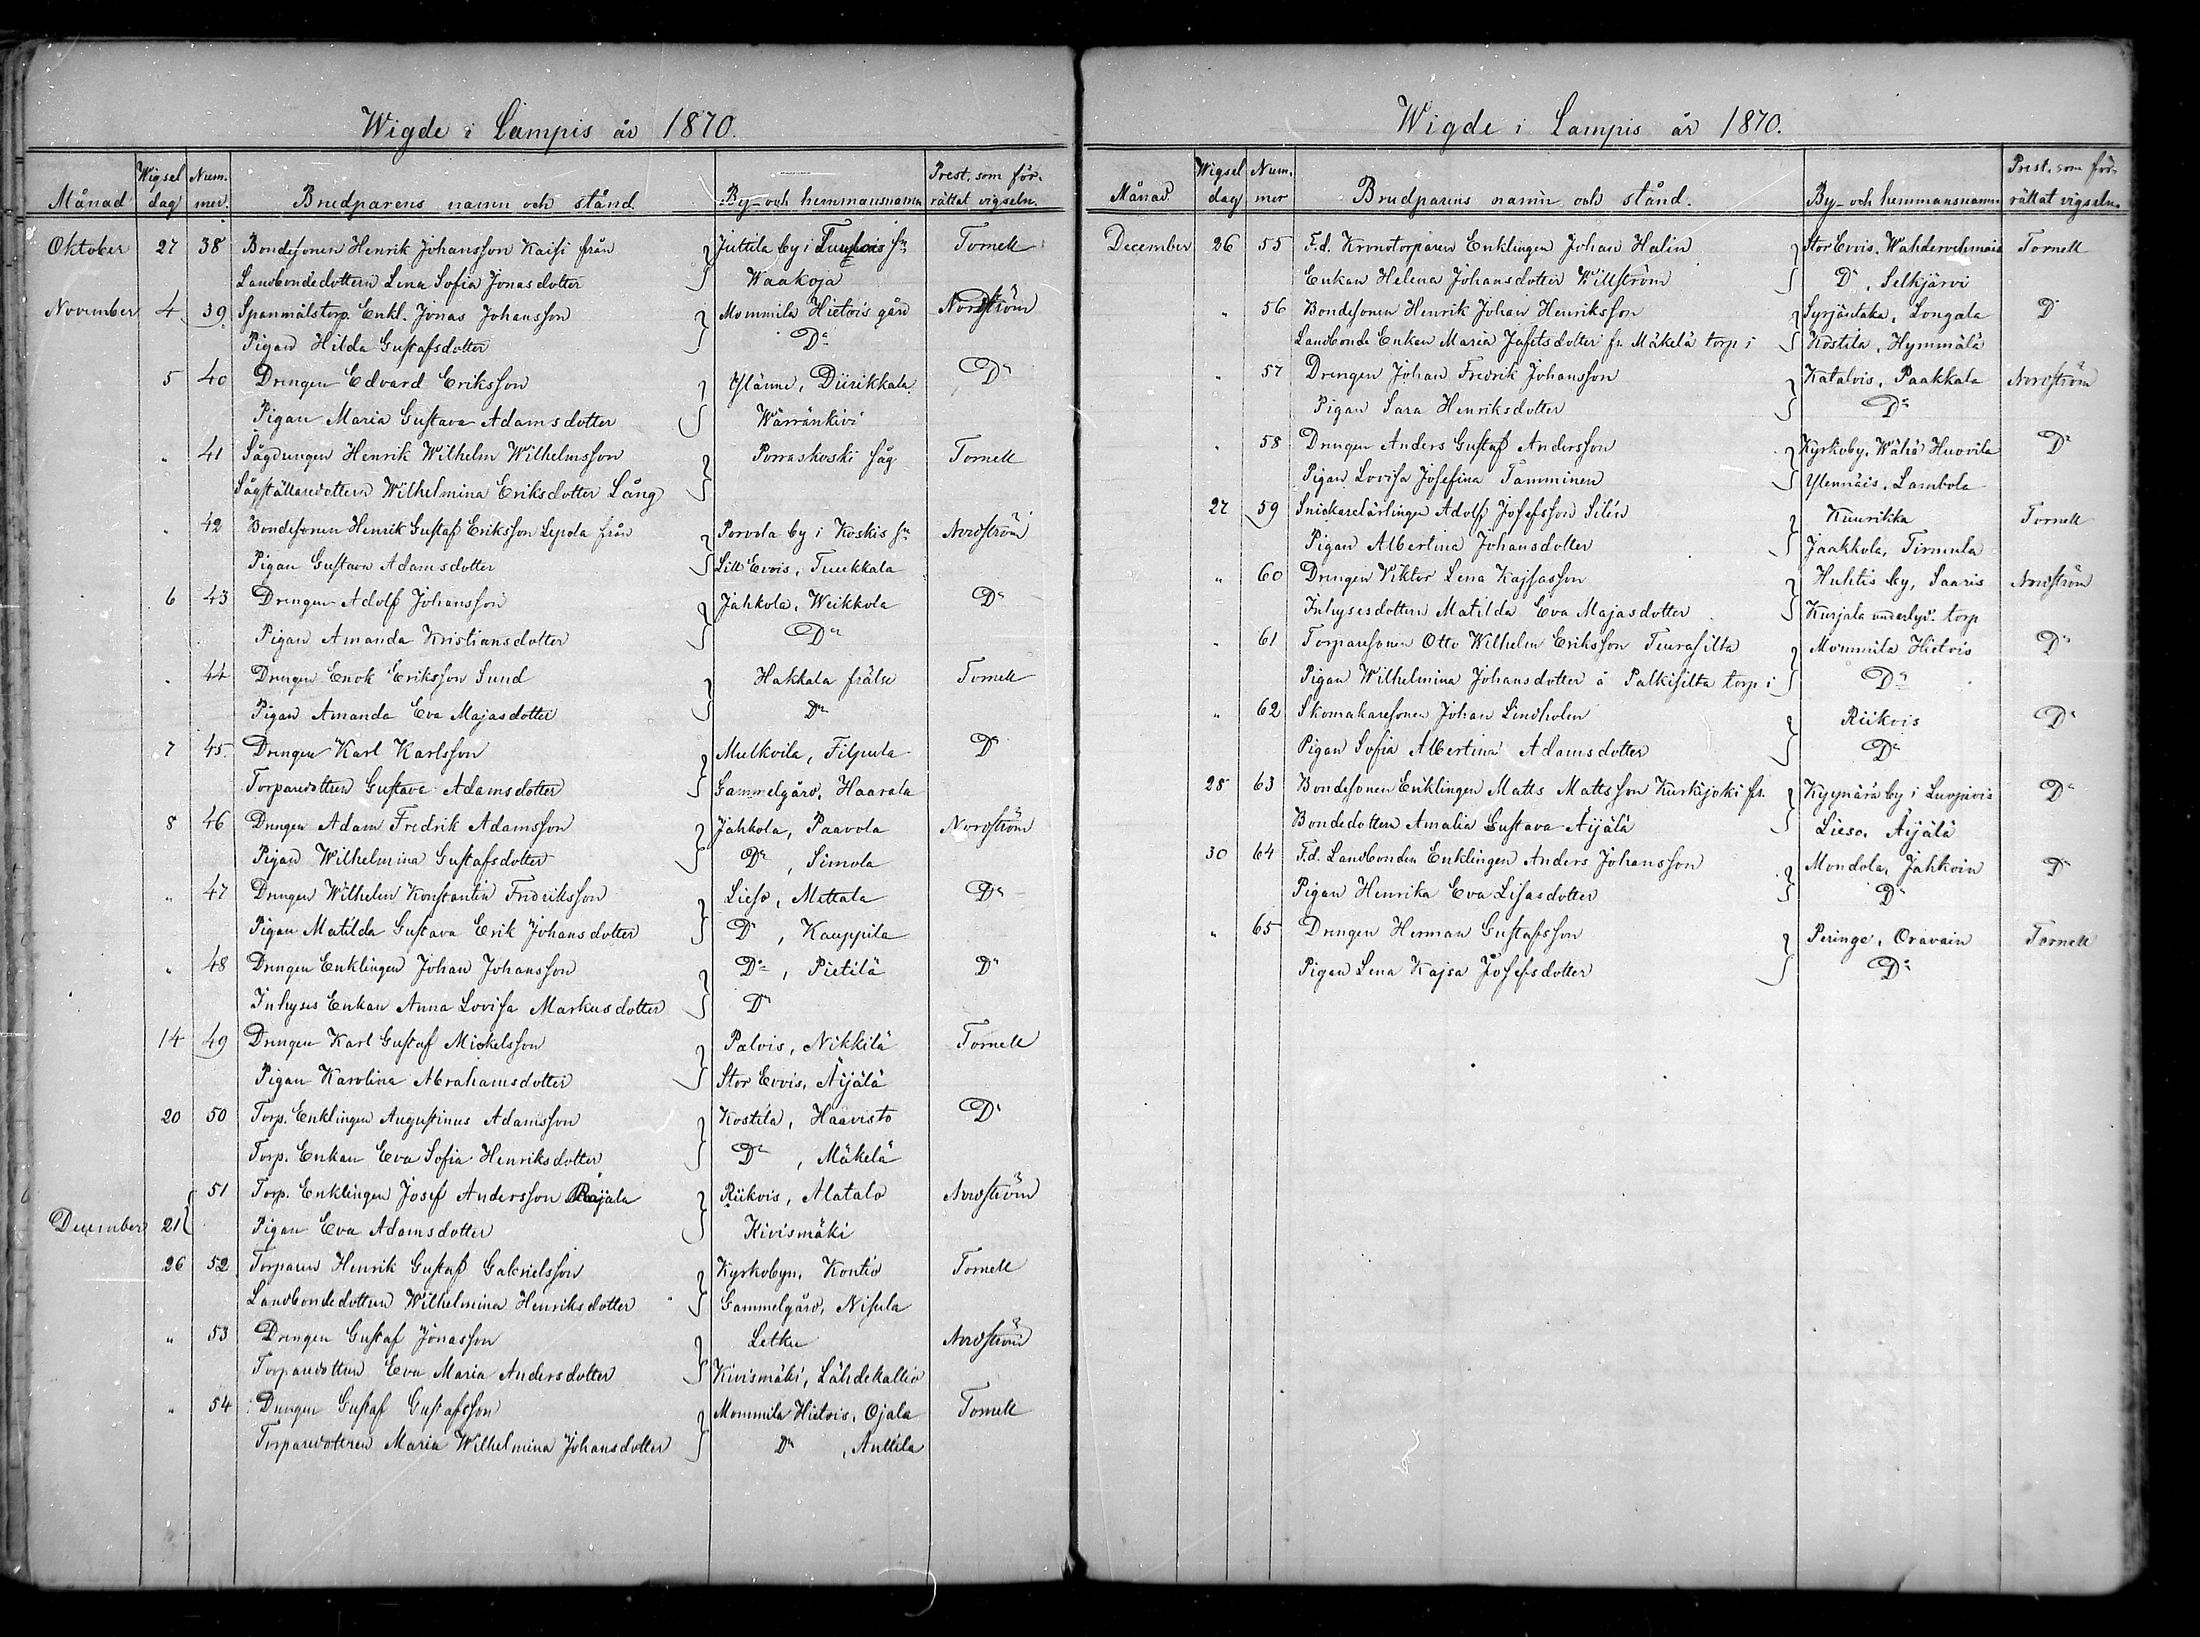 Wigde i Lampis år 1870.
Månad Wigsel dag Num. mer. Brudparens namn och stånd. By- och hemmansnamn Prest, som för- rättat vigseln.
Oktober 27 38 Bondesonen Henrik Johansson Kaisi från Juttila by i Tuulois sn Tornell
Landbondedottern Lena Sofia Jonasdotter Waakoja
November 4 39 Spanmålstorp. Enkl. Jonas Johansson Mommila Hietois gård Nordström
Pigan Hilda Gustafsdotter Do
5 40 Drengen Edvard Eriksson Ylänne, Diirikkala Do
Pigan Maria Gustava Adamsdotter Wärränkivi
" 41 Sågdrengen Henrik Wilhelm Wilhelmsson Porraskoski såg Tornell
Sågställaredottern Wilhelmina Eriksdotter Lång
" 42 Bondesonen Henrik Gustaf Eriksson Lepola från Porvola by i Koskis sn Nordström
Pigan Gustava Adamsdotter Lill Evois, Tuukkala
6 43 Drengen Adolf Johansson Jahkola, Weikkola Do
Pigan Amanda Kristiansdotter Do
" 44 Drengen Enok Eriksson Sund Hakkala frälse Tornell
Pigan Amanda Eva Majasdotter Do
7 45 Drengen Karl Karlsson Mulkoila, Filpula Do
Torparedottern Gustava Adamsdotter Gammelgård, Haarala
8 46 Drengen Adam Fredrik Adamsson Jahkola, Paavola Nordström
Pigan Wilhelmina Gustafsdotter Do, Simola
" 47 Drengen Wilhelm Konstantin Fredriksson Lieso, Mattala Do
Pigan Matilda Gustava Erik Johansdotter Do, Kauppila
" 48 Drengen Enklingen Johan Johansson Do, Pietilä Do
Inhyses Enkan Anna Lovisa Markusdotter Do
14 49 Drengen Karl Gustaf Mickelsson Palvis, Nikkilä Tornell
Pigan Karolina Abrahamsdotter Stor Evois, Äijälä
20 50 Torp. Enklingen Augustinus Adamsson Kostila, Haavisto Do
Torp. Enkan Eva Sofia Henriksdotter Do, Mäkelä
51 Torp. Enklingen Josef Andersson Rajala Riikois, Alatalo Nordström
December 21 Pigan Eva Adamsdotter Kivismäki
26 52 Torparen Henrik Gustaf Gabrielsson Kyrkobyn, Kontio Tornell
Landbondedottren Wilhelmina Henriksdotter Gammelgård, Nisula
" 53 Drengen Gustaf Jonasson Letku Nordström
Torparedottren Eva Maria Andersdotter Kivismäki, Lähdekallio
" 54 Drengen Gustaf Gustafsson Mommila Hietois, Ojala Tornell
Torparedottren Maria Wilhelmina Johansdotter Do, Anttila
Wigde i Lampis år 1870.
Månad Wigsel dag Num. mer Brudparens namn och stånd. By- och hemmansnamn Prest, som för- rättat vigseln.
December 26 55 F.d. Kronotorparen Enklingen Johan Halin Stor Evois. Wahdervehmais Tornell
Enkan Helena Johansdotter Willström Do, Selkjärvi
" 56 Bondesonen Henrik Johan Henriksson Syrjäntaka, Longala Do
Landbonde Enkan Maria Jafetsdotter fr. Mäkelä torp i Kostila, Hymmälä
" 57 Drengen Johan Fredrik Johansson Katalois, Paakkala Nordström
Pigan Sara Henriksdotter Do
" 58 Drengen Anders Gustaf Andersson Kyrkoby, Wähä Huovila Do
Pigan Lovisa Josefina Tamminen Ylennäis, Lambola
27 59 Snickarelärlingen Adolf Josefsson Silén Kuurikka Tornell
Pigan Albertina Johansdotter Jaakkola, Tirmula
" 60 Drengen Viktor Lena Kajsasson Huhtis by, Saaris Nordström
Inhysesdottern Matilda Eva Majasdotter Kurjala underlyd. torp
" 61 Torparesonen Otto Wilhelm Eriksson Teurasilta Mommila Hietois Do
Pigan Wilhelmina Johansdotter å Palkisilta torp i Do
" 62 Skomakaresonen Johan Lindholm Riikois Do
Pigan Sofia Albertina Adamsdotter Do
28 63 Bondesonen Enklingen Matts Mattsson Kurkijoki fr. Kyynärä by i Luopiois Do
Bondedottern Amalia Gustava Äijälä Lieso, Äijälä
30 64 F.d. Landbonden Enklingen Anders Johansson Mondola, Jahkoin Do
Pigan Henrika Eva Lisasdotter Do
" 65 Drengen Herman Gustafsson Peringe, Oravain Tornell
Pigan Lena Kajsa Josefsdotter Do